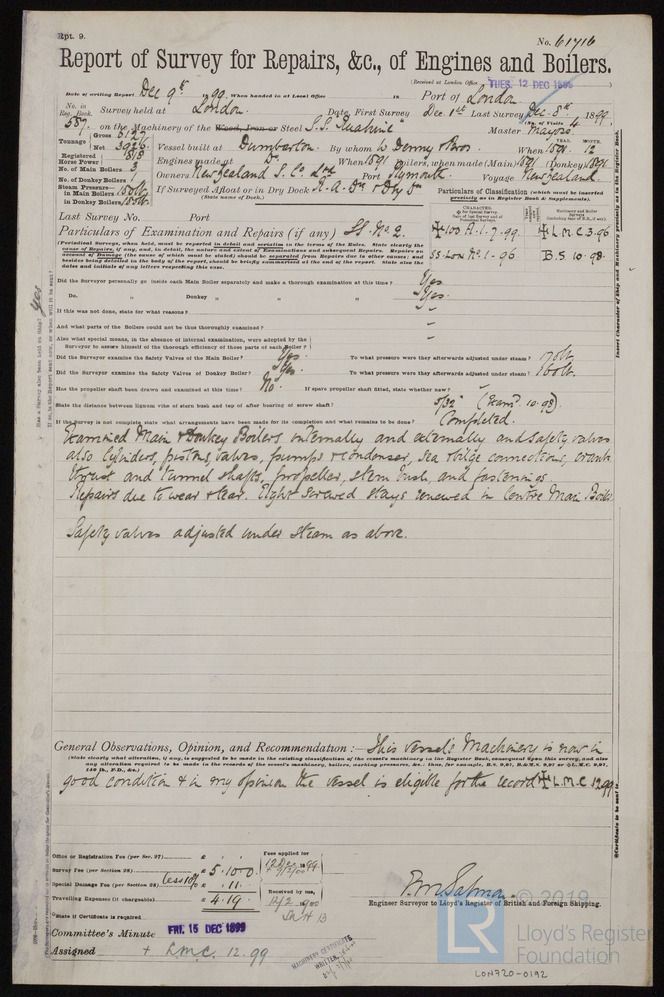 Rpt. 9.
No. 61716
Report of Survey for Repairs, &c., of Engines and Boilers.
(Received at London Office TUES. 12 DEC 1899)
Date of writing Report Dec 9th 1899. When handed in at Local Office 18 Port of London
No. in Reg. Book. 587. Survey held at London. Date, First Survey Dec. 1st Last Survey Dec. 8th 1899.
(No. of Visits 4)
on the Machinery of the Wood, Iron or Steel S.S. Ruahine Master Mayors
Tonnage Gross 6127 Net 3926
Vessel built at Dumbarton. By whom W Denny & Bros. When 1891. MONTH. 12
Registered Horse Power
Engines made at Do. When 1891 Boilers, when made (Main) 1891 (Donkey) 1891
No. of Main Boilers 3
No. of Donkey Boilers 1
Owners New Zealand S. Co. Ltd Port Plymouth. Voyage New Zealand.
Steam Pressure in Main Boilers
in Donkey Boilers
If Surveyed Afloat or in Dry Dock R. A. Dk & Dry Dk
(State name of Dock.)
Particulars of Classification (which must be inserted precisely as in Register Book & Supplements).
Last Survey No. Port
Particulars of Examination and Repairs (if any) SS. No 2.
✠ 100 A.1. 7.99. ✠ L.M.C 3.96
SS. Lon No. 1-96 B.S 10.98.
(Periodical Surveys, when held, must be reported in detail and seriatim in the terms of the Rules. State clearly the
cause of Repairs, if any, and, in detail, the nature and extent of Examinations and subsequent Repairs. Repairs on
account of Damage (the cause of which must be stated) should be separated from Repairs due to other causes; and
besides being detailed in the body of the report, should be briefly summarised at the end of it. State also the
dates and initials of any letters respecting this case.
Did the Surveyor personally go inside each Main Boiler separately and make a thorough examination at this time? Yes.
Do. " Donkey " " " Yes.
If this was not done, state for what reasons? –
And what parts of the Boilers could not be thus thoroughly examined? –
Also what special means, in the absence of internal examination, were adopted by the
Surveyor to assure himself of the thorough efficiency of those parts of each Boiler? –
Did the Surveyor examine the Safety Valves of the Main Boiler? Yes. To what pressure were they afterwards adjusted under steam?
Did the Surveyor examine the Safety Valves of Donkey Boiler? Yes. To what pressure were they afterwards adjusted under steam?
Has the propeller shaft been drawn and examined at this time? No. If spare propeller shaft fitted, state whether new? –
State the distance between lignum vitæ of stern bush and top of after bearing of screw shaft? 5/32" (Exam'd. 10.98).
If the Survey is not complete state what arrangements have been made for its completion and what remains to be done? Completed.
Examined Main & Donkey Boilers internally and externally and safety valves
also cylinders, pistons, valves, pumps & condenser, sea & bilge connections, crank
thrust and tunnel shafts, propeller, stern bush, and fastenings
Repairs due to wear & tear. Eight screwed stays renewed in Centre Main Boiler.
Safety valves adjusted under steam as above.
General Observations, Opinion, and Recommendation :— This vessel's Machinery is now in
(State clearly what alteration, if any, is suggested to be made in the existing classification of the vessel's machinery in the Register Book, consequent upon this survey, and also
any alteration required to be made in the records of the vessel's machinery, boilers, working pressures, &c.; thus, for example, B.S. 9,97, B.&M.S. 9,97 or ✠L.M.C. 9,97,
140 lb., F.D., &c.)
good condition & in my opinion the vessel is eligible for the record ✠ L.M.C 12.99.
Office or Registration Fee (per Sec. 27) £
Survey Fee (per Section 28) £ 5.10.0
Special Damage Fee (per Section 28) less 10% £ .11.
Travelling Expenses (if chargeable) £ 4.19.
Fees applied for 12 Dec 1899
Received by me,
State if Certificate is required
Engineer Surveyor to Lloyd's Register of British and Foreign Shipping.
Committee's Minute FRI. 15 DEC 1899
Assigned + L.M.C. 12.99
MACHINERY CERTIFICATE WRITTEN
© 2019
LR Lloyd's Register Foundation
LON720-0192